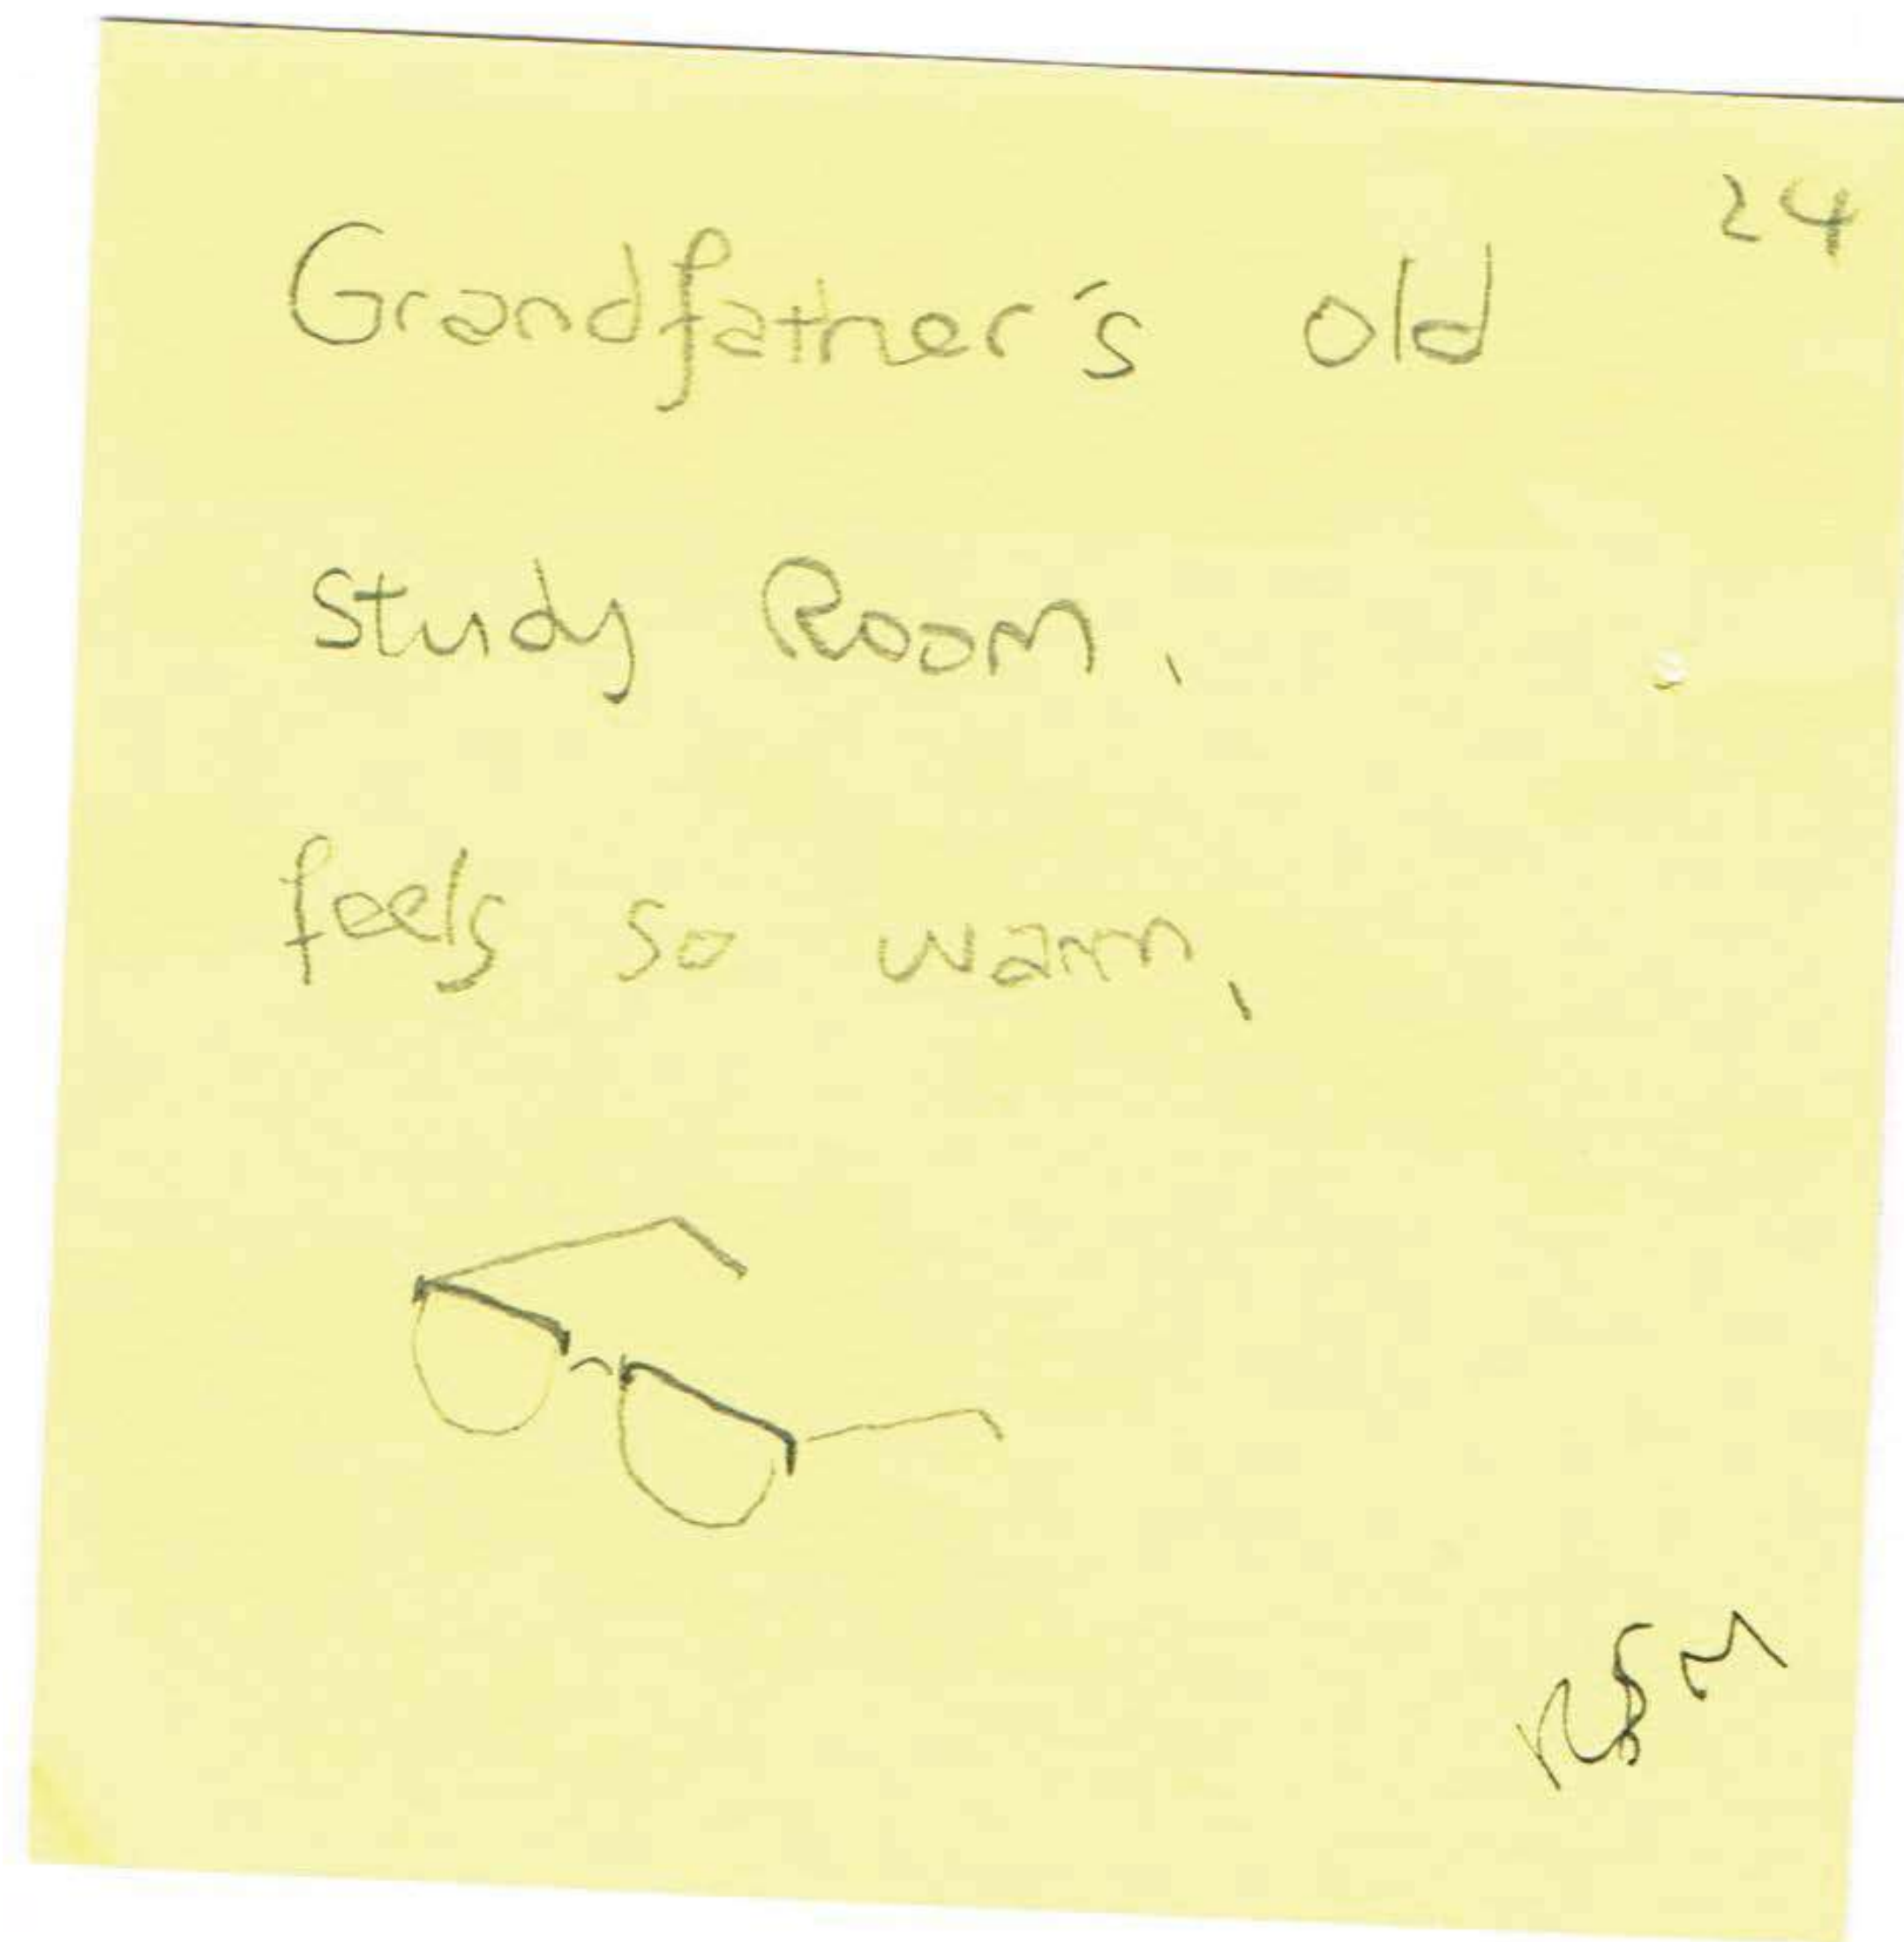 24
Grandfather's old
Study Room,
feels so warm,